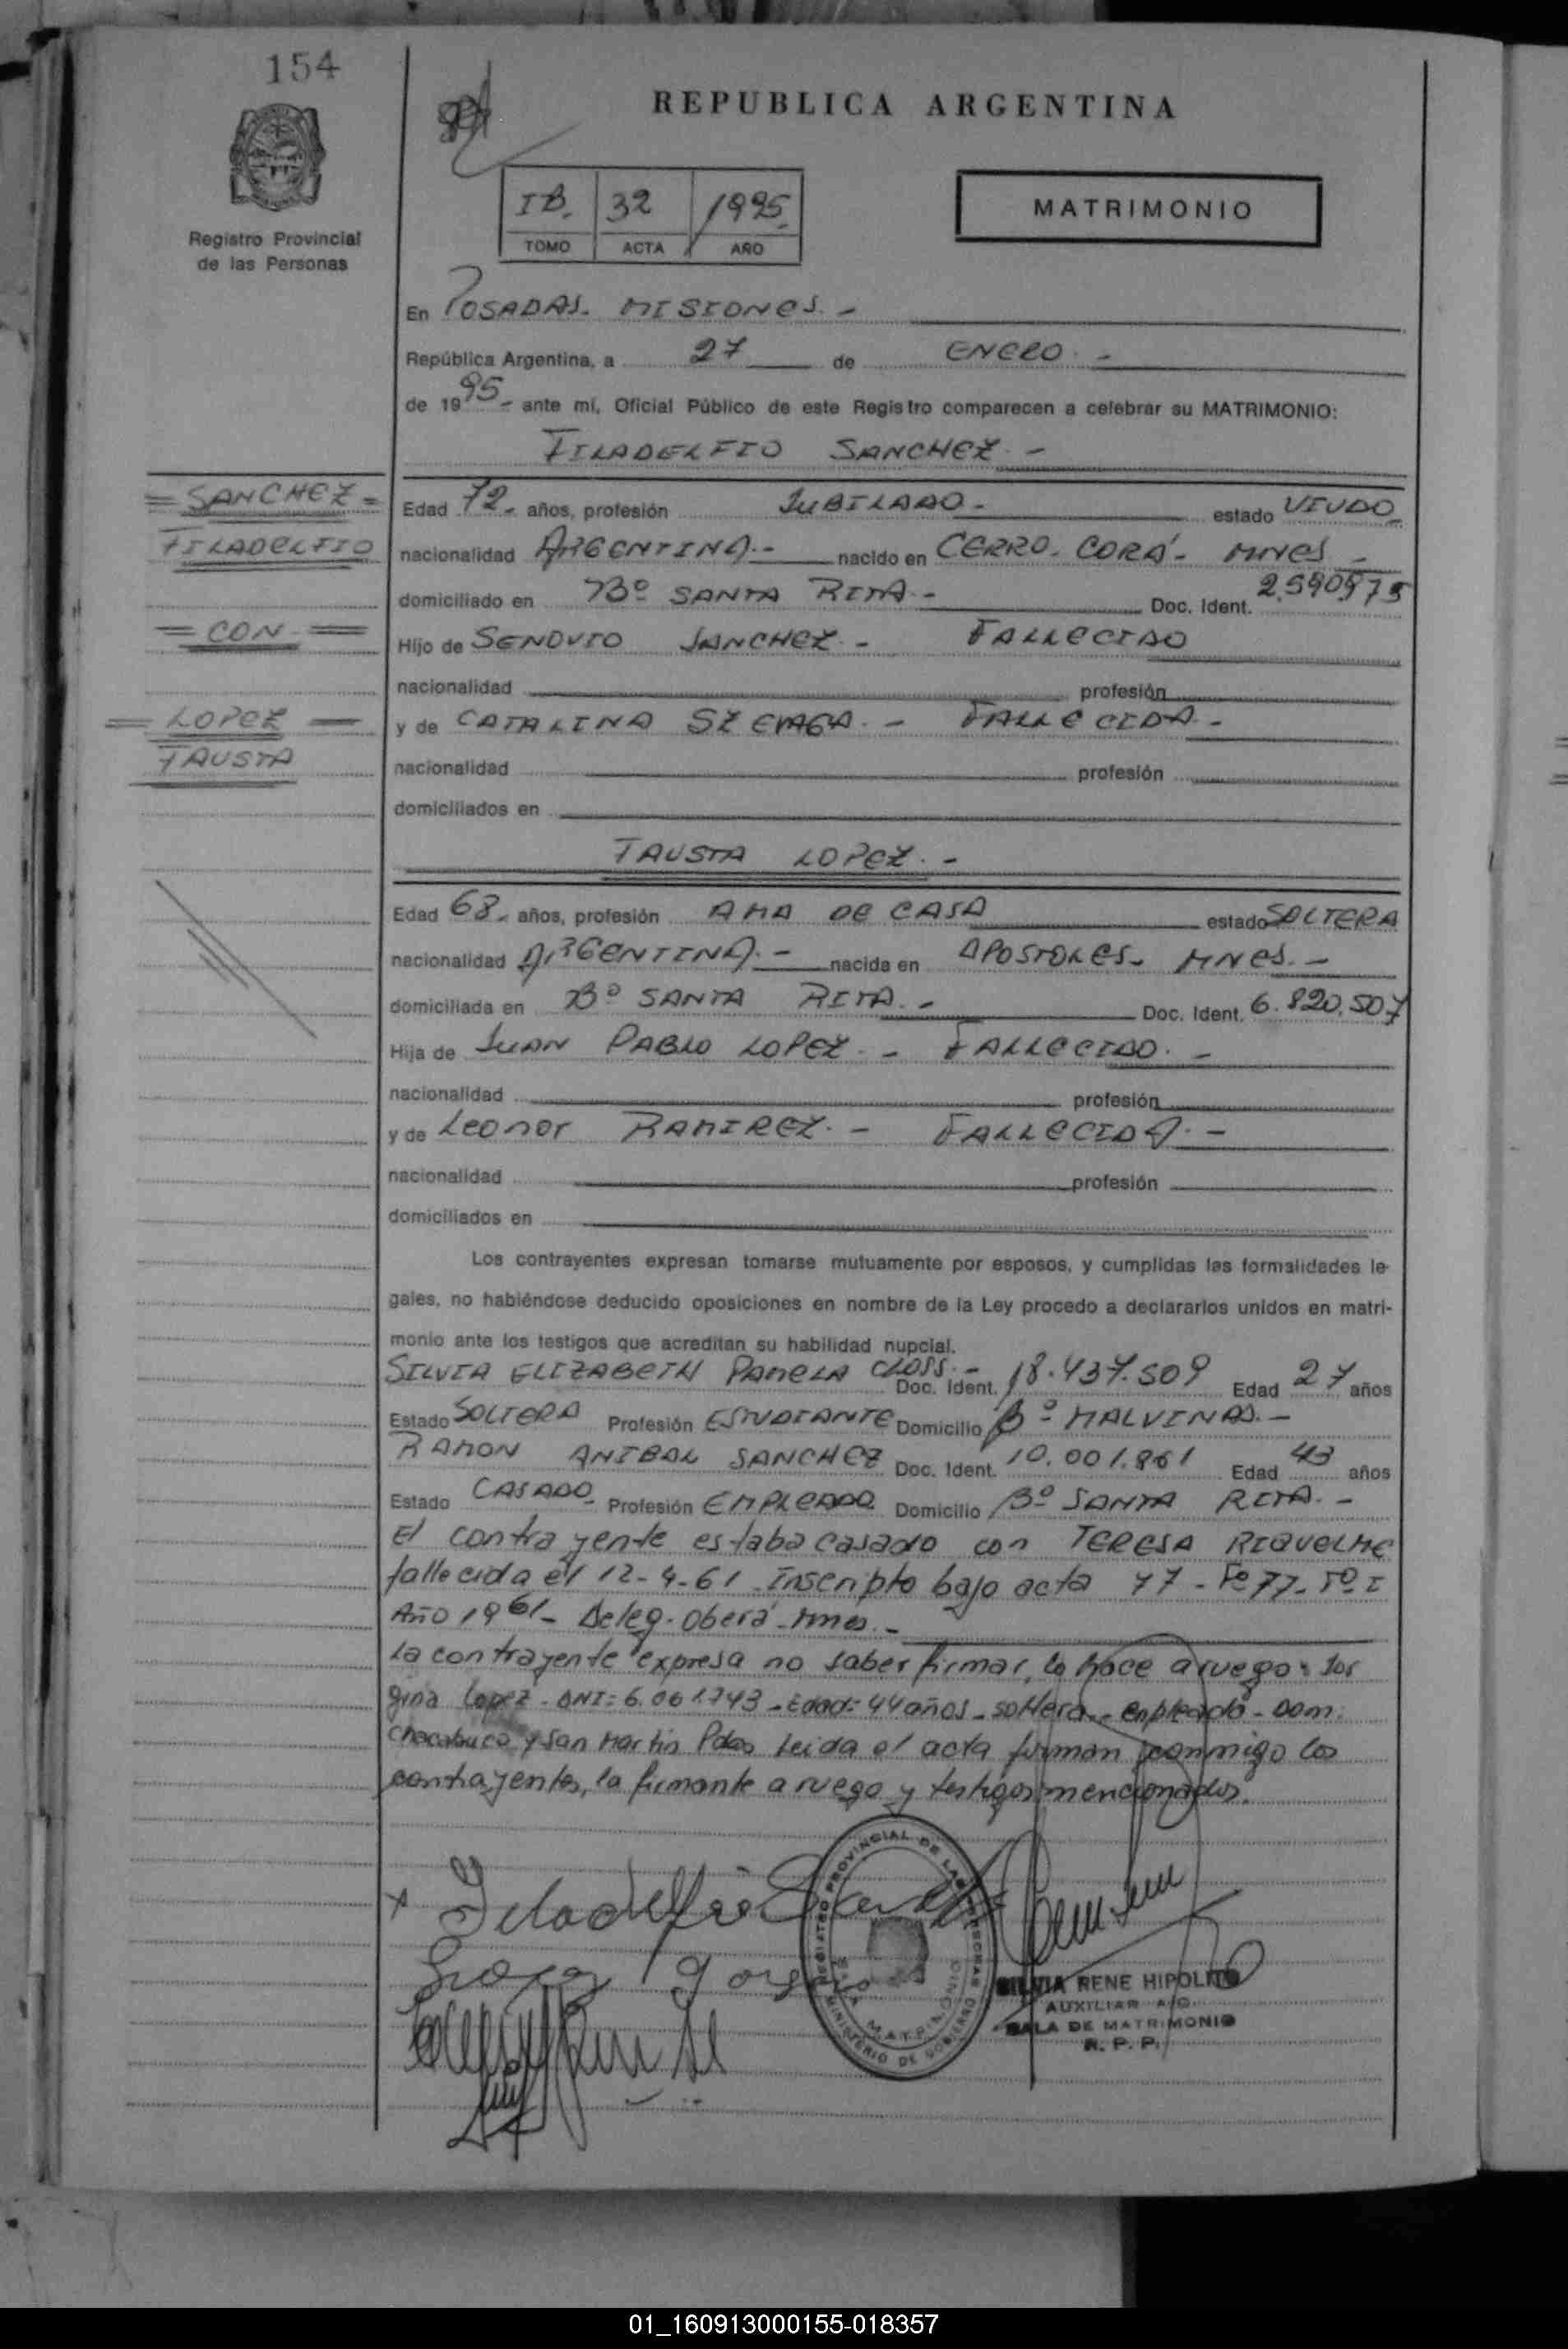 154
REPUBLICA ARGENTINA
Registro Provincial
de las Personas
IB. 32 1995
TOMO ACTA AÑO
MATRIMONIO
En POSADAS. MISIONES. -
República Argentina, a 27 de ENERO. -
de 1995 - ante mí, Oficial Público de este Registro comparecen a celebrar su MATRIMONIO:
FILADELFIO SANCHEZ. -
= SANCHEZ =
FILADELFIO
= CON =
= LOPEZ =
FAUSTA
Edad 72. años, profesión JUBILADO - estado VIUDO
nacionalidad ARGENTINA. - nacido en CERRO. CORÁ - MNES -
domiciliado en Bº SANTA RITA. - Doc. Ident.
Hijo de SENOVIO SANCHEZ. - FALLECIDO
nacionalidad profesión
y de CATALINA - FALLECIDA -
nacionalidad profesión
domiciliados en
FAUSTA LOPEZ. -
Edad 68. años, profesión AMA DE CASA estado SOLTERA
nacionalidad ARGENTINA. - nacida en APOSTOLES. MNES. -
domiciliada en Bº SANTA RITA. - Doc. Ident. 6.820.507
Hija de JUAN PABLO LOPEZ. - FALLECIDO. -
nacionalidad profesión
y de Leonor RAMIREZ. - FALLECIDA. -
nacionalidad profesión
domiciliados en
Los contrayentes expresan tomarse mutuamente por esposos, y cumplidas las formalidades le-
gales, no habiéndose deducido oposiciones en nombre de la Ley procedo a declararlos unidos en matri-
monio ante los testigos que acreditan su habilidad nupcial.
SILVIA ELIZABETH PAMELA CLOSS. - Doc. Ident. 18.437.509 Edad 27 años
Estado SOLTERA Profesión ESTUDIANTE Domicilio Bº MALVINAS. -
RAMON ANIBAL SANCHEZ Doc. Ident. 10.001.861 Edad 43 años
Estado CASADO Profesión EMPLEADO Domicilio Bº SANTA RITA. -
El contrayente estaba casado con TERESA RIQUELME
fallecida el 12-4-61 - Inscripto bajo acta 77 - Fº 77 - Tº I
Año 1961 - Deleg. Oberá - Mnes. -
La contrayente expresa no saber firmar, lo hace a ruego: Jor
gina Lopez - DNI: 6.061.743 - Edad: 44 años - soltera - empleada - Dom:
Chacabuco y San Martin Pdas leida el acta firman conmigo los
contrayentes, la firmante a ruego y testigos mencionados.
Filadelfio Sanchez
REGISTRO PROVINCIAL DE LAS PERSONAS
SALA MATRIMONIO
MINISTERIO DE GOBIERNO
SILVIA RENE HIPOLITO
AUXILIAR
SALA DE MATRIMONIO
R. P. P.
01_160913000155-018357